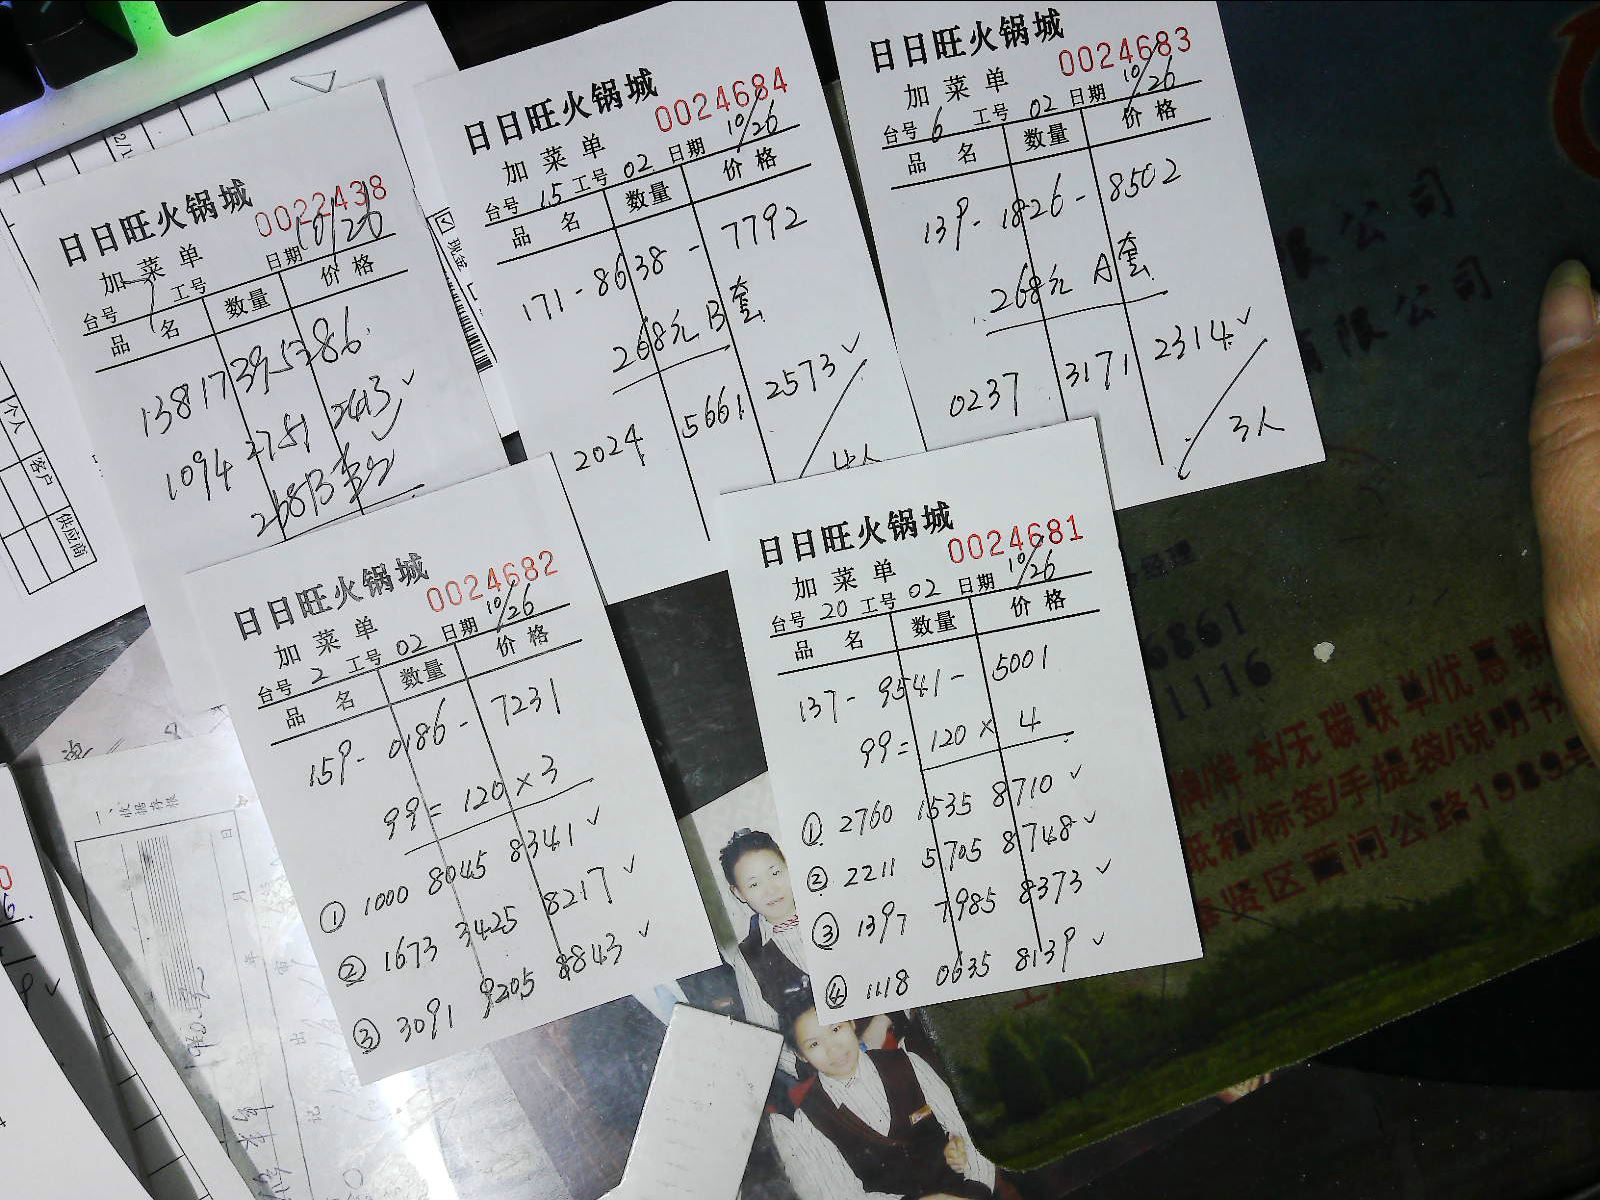 日日旺火锅城
0022438
加菜单
日期 10/26
台号 1 工号
品名 数量 价格
138 1739 5386
1094 2751 2413 ✓
268B套
日日旺火锅城
0024684
加菜单
台号 15 工号 02 日期 10/26
品名 数量 价格
171-8638-7792
268元 B套
2024 5661 2573 ✓
4人
日日旺火锅城
0024683
加菜单
台号 6 工号 02 日期 10/26
品名 数量 价格
139-1826-8502
268元 A套
0237 3171 2314 ✓
3人
日日旺火锅城
0024682
加菜单
台号 2 工号 02 日期 10/26
品名 数量 价格
159-0186-7231
99=120×3
① 1000 8045 8341 ✓
② 1673 3425 8217 ✓
③ 3091 9205 8843 ✓
日日旺火锅城
0024681
加菜单
台号 20 工号 02 日期 10/26
品名 数量 价格
137-9541-5001
99=120×4
① 2760 1535 8710 ✓
② 2211 5705 8748 ✓
③ 1397 7985 8373 ✓
④ 1118 0635 8139 ✓
个人
客户
供应商
限公司
有限公司
经理
6861
1116
样本/无碳联单/优惠券
纸箱/标签/手提袋/说明书
奉贤区西闸公路1989号